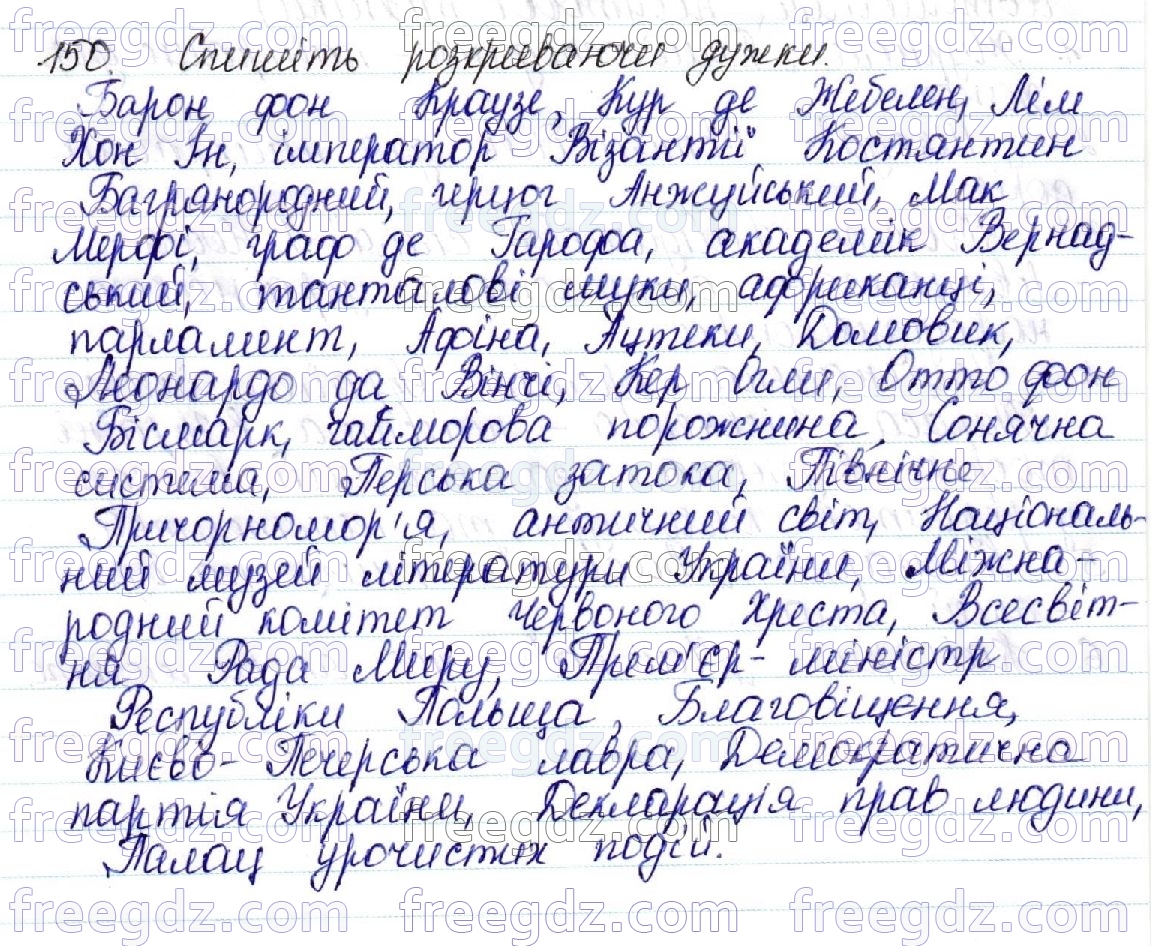 150. Спишіть розкриваючи дужки.
Барон фон Краузе, Кур де Жебелен, Лім
Хон Ін, імператор Візантії Костянтин
Багрянородний, герцог Анжуйський, Мак
Мерфі, граф де Гарофа, академік Вернад-
ський, танталові муки, африканці,
парламент, Афіна, Ацтеки, Домовик,
Леонардо да Вінчі, Кер Огли, Отто фон
Бісмарк, гайморова порожнина, Сонячна
система, Перська затока, Північне
Причорномор'я, античний світ, Національ-
ний музей літератури України, Міжна-
родний комітет Червоного Хреста, Всесвіт-
ня Рада Миру, Прем'єр-міністр
Республіки Польща, Благовіщення,
Києво-Печерська лавра, Демократична
партія України, Декларація прав людини,
Палац урочистих подій.
freegdz.com